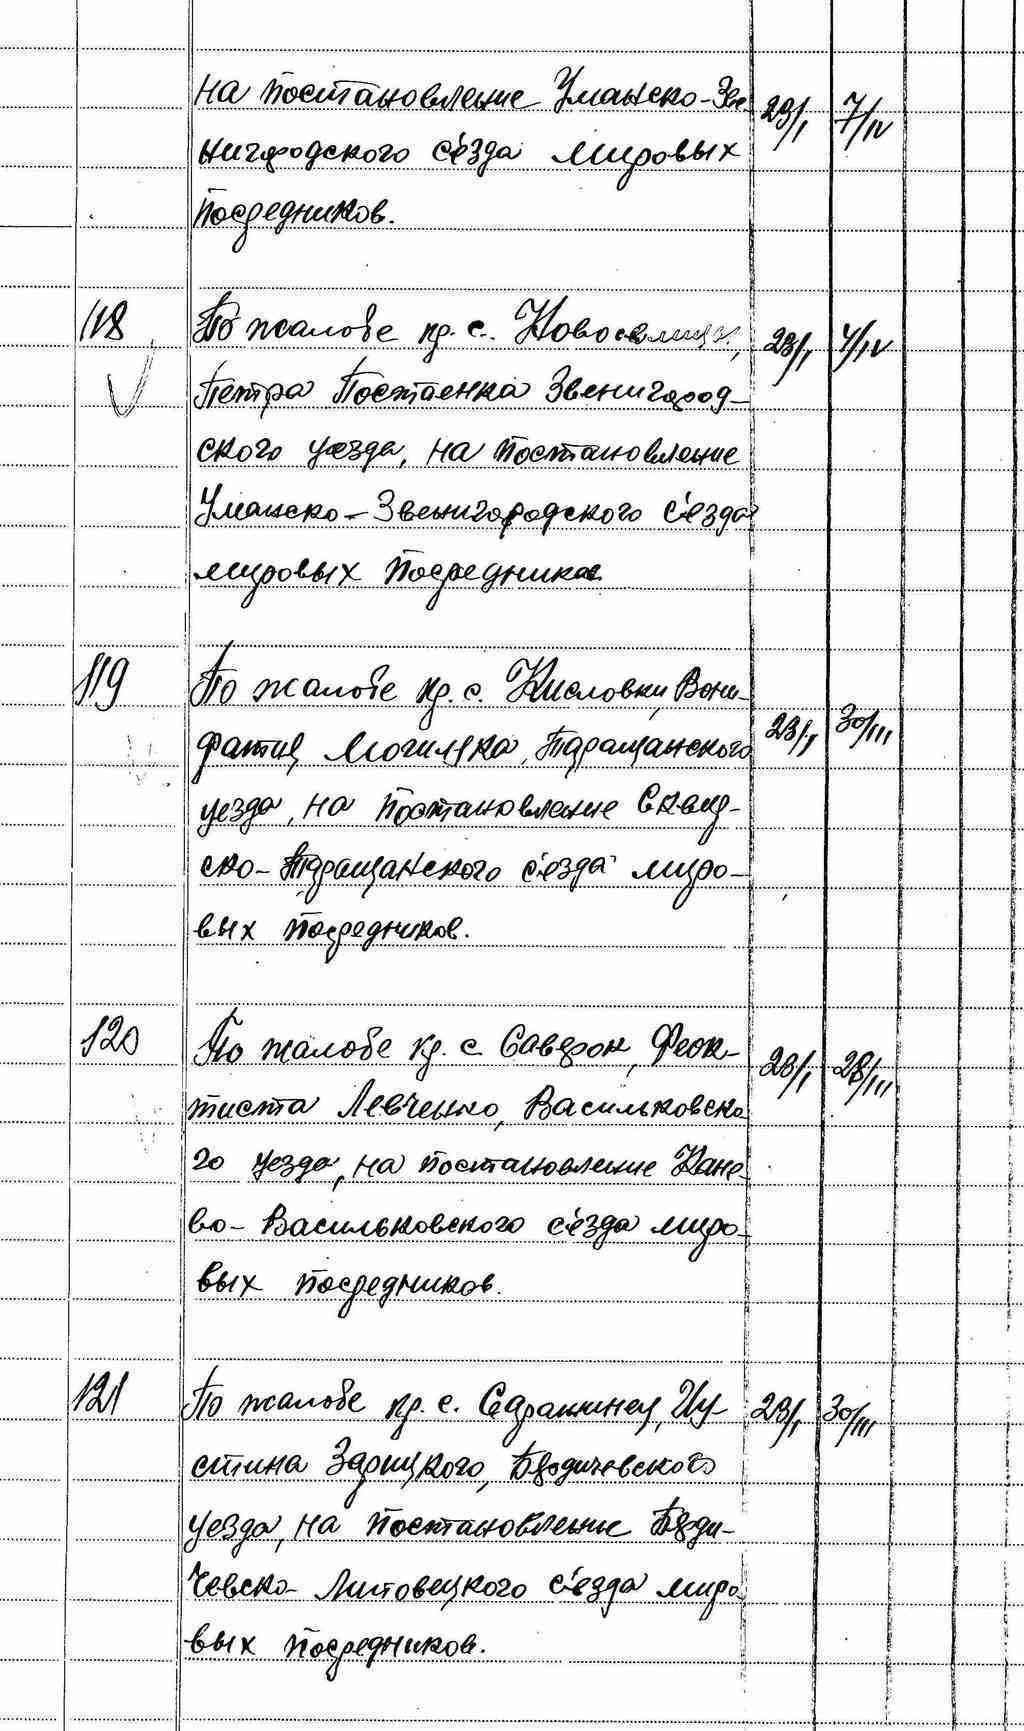 на постановление Уманско-Зве-
нигородского с'езда мировых
посредников.
23/I 7/IV
118 По жалобе кр. с. Новоселицы,
Петра Постаенка Звенигород-
ского уезда, на постановление
Уманско-Звенигородского с'езда
мировых посредников
23/I 4/IV
119 По жалобе кр. с. Кисловки, Вони-
фатия Могиляка, Таращанского
уезда, на постановление Сквир-
ско-Таращанского с'езда миро-
вых посредников.
23/I 30/III
120 По жалобе кр. с. Феок-
тиста Левченко, Васильковско
го уезда, на постановление Кане-
во-Васильковского с'езда миро-
вых посредников.
23/I 28/III
121 По жалобе кр. с. Иу-
стина Зарицкого, Бердичевского
уезда, на постановление Берди-
чевско-Липовецкого с'езда миро
вых посредников.
23/I 30/III